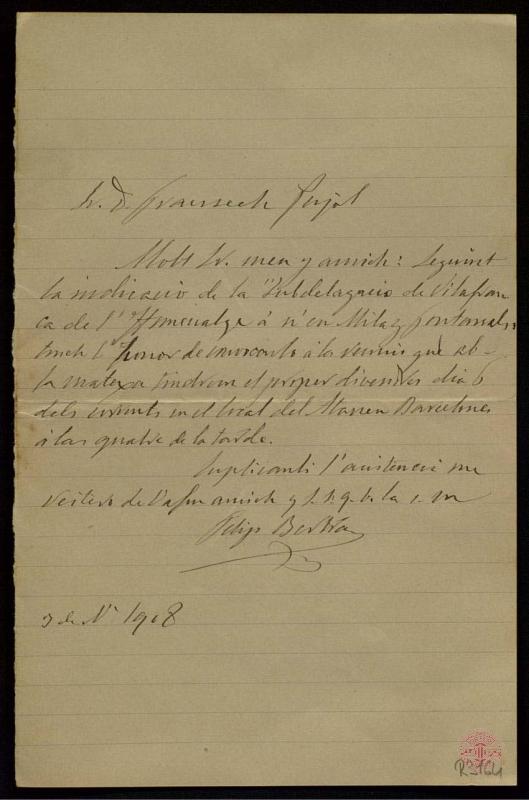 Sr. D. Francesch Pujol
Molt Sr. meu y amich: Seguint
la indicació de la "Subdelagació de Vilafran-
ca de l'Homenatge á n'en Milá y Fontanals"
tinch l'honor de convocarlo á la reunió que ab
la mateixa tindrem el proper divendres dia 6
dels corrents en el local del Ateneu Barcelones
á las quatre de la tarde.
Suplicantli l'asistencia me
reitero de V. afm amich y s. s. q. b. la s. m
Felip Bertran
3 de Nbre 1908
R 3164